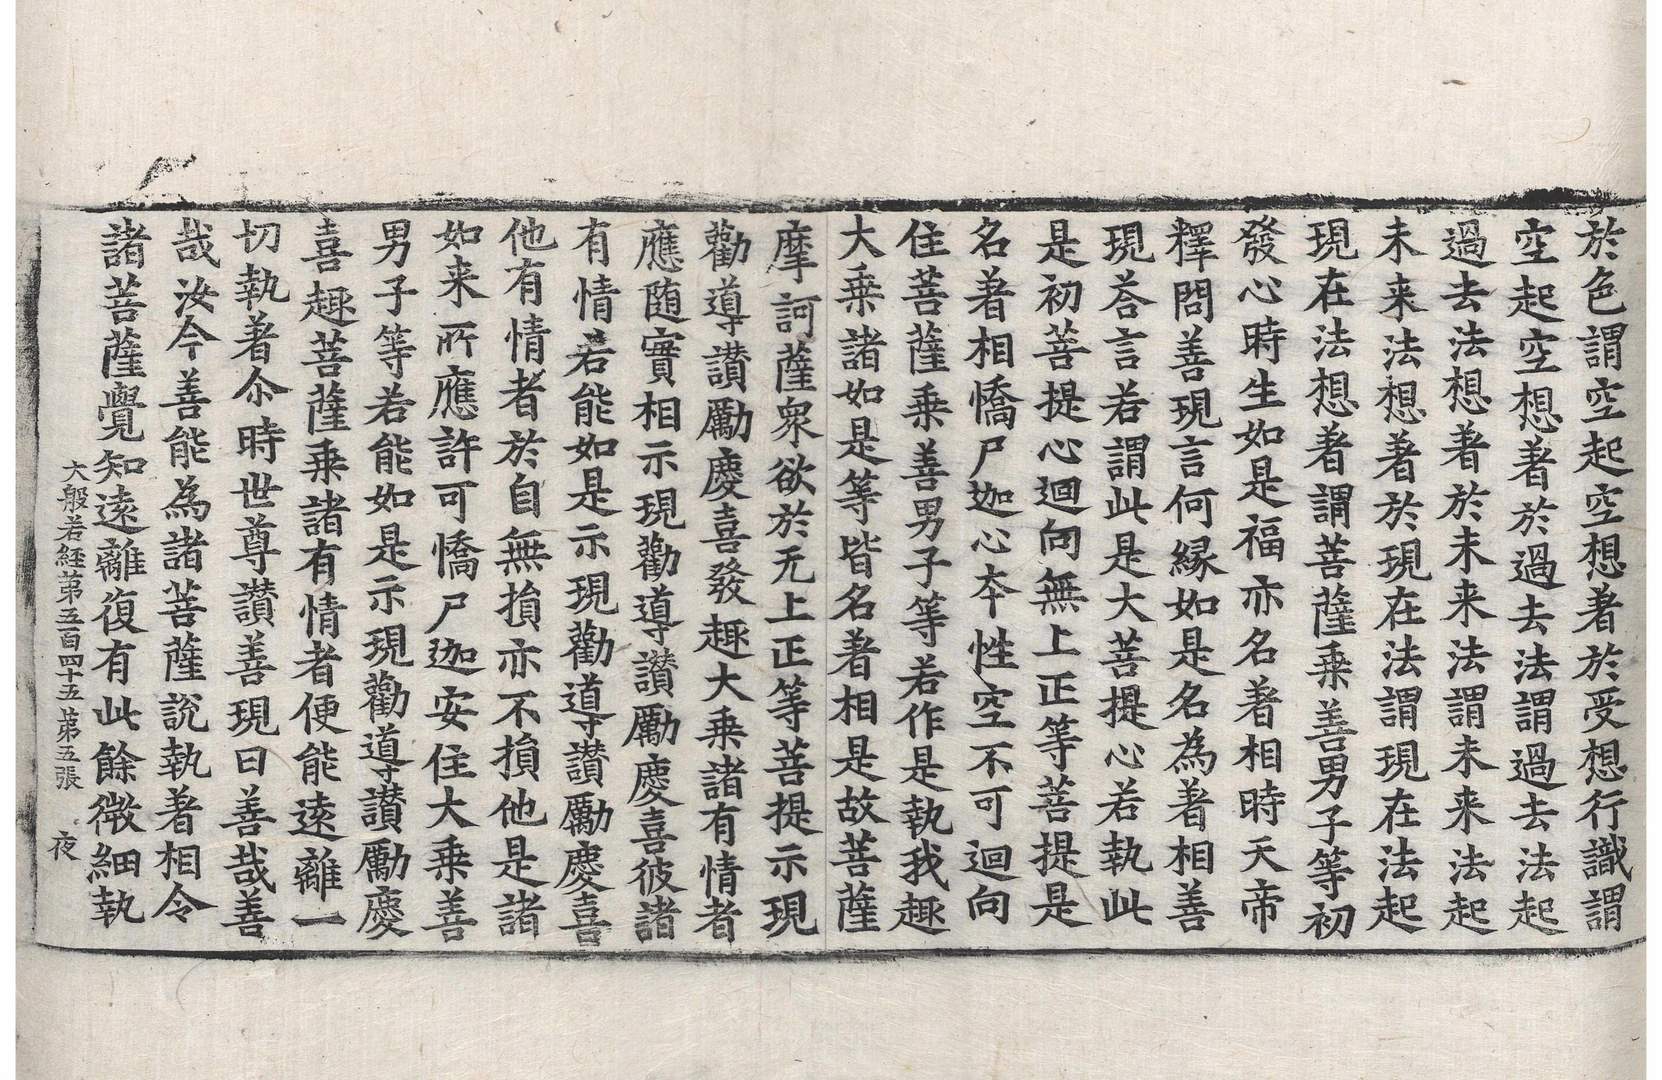 於色謂空起空想著於受想行識謂
空起空想著於過去法謂過去法起
過去法想著於未来法謂未来法起
未来法想著於現在法謂現在法起
現在法想著謂菩薩乗善男子等初
發心時生如是福亦名著相時天帝
釋問善現言何縁如是名為著相善
現荅言若謂此是大菩提心若執此
是初菩提心迴向無上正等菩提是
名著相憍尸迦心夲性空不可迴向
住菩薩乗善男子等若作是執我趣
大乗諸如是等皆名著相是故菩薩
摩訶薩衆欲於无上正等菩提示現
勸導讃勵慶喜發趣大乗諸有情者
應随實相示現勸導讃勵慶喜彼諸
有情若能如是示現勸導讃勵慶喜
他有情者於自無損亦不損他是諸
如来所應許可憍尸迦安住大乗善
男子等若能如是示現勸導讃勵慶
喜趣菩薩乗諸有情者便能遠離一
切執著尒時世尊讃善現曰善哉善
哉汝今善能為諸菩薩說執著相令
諸菩薩覺知遠離復有此餘微細執
大般若經第五百四十五 第五張 夜